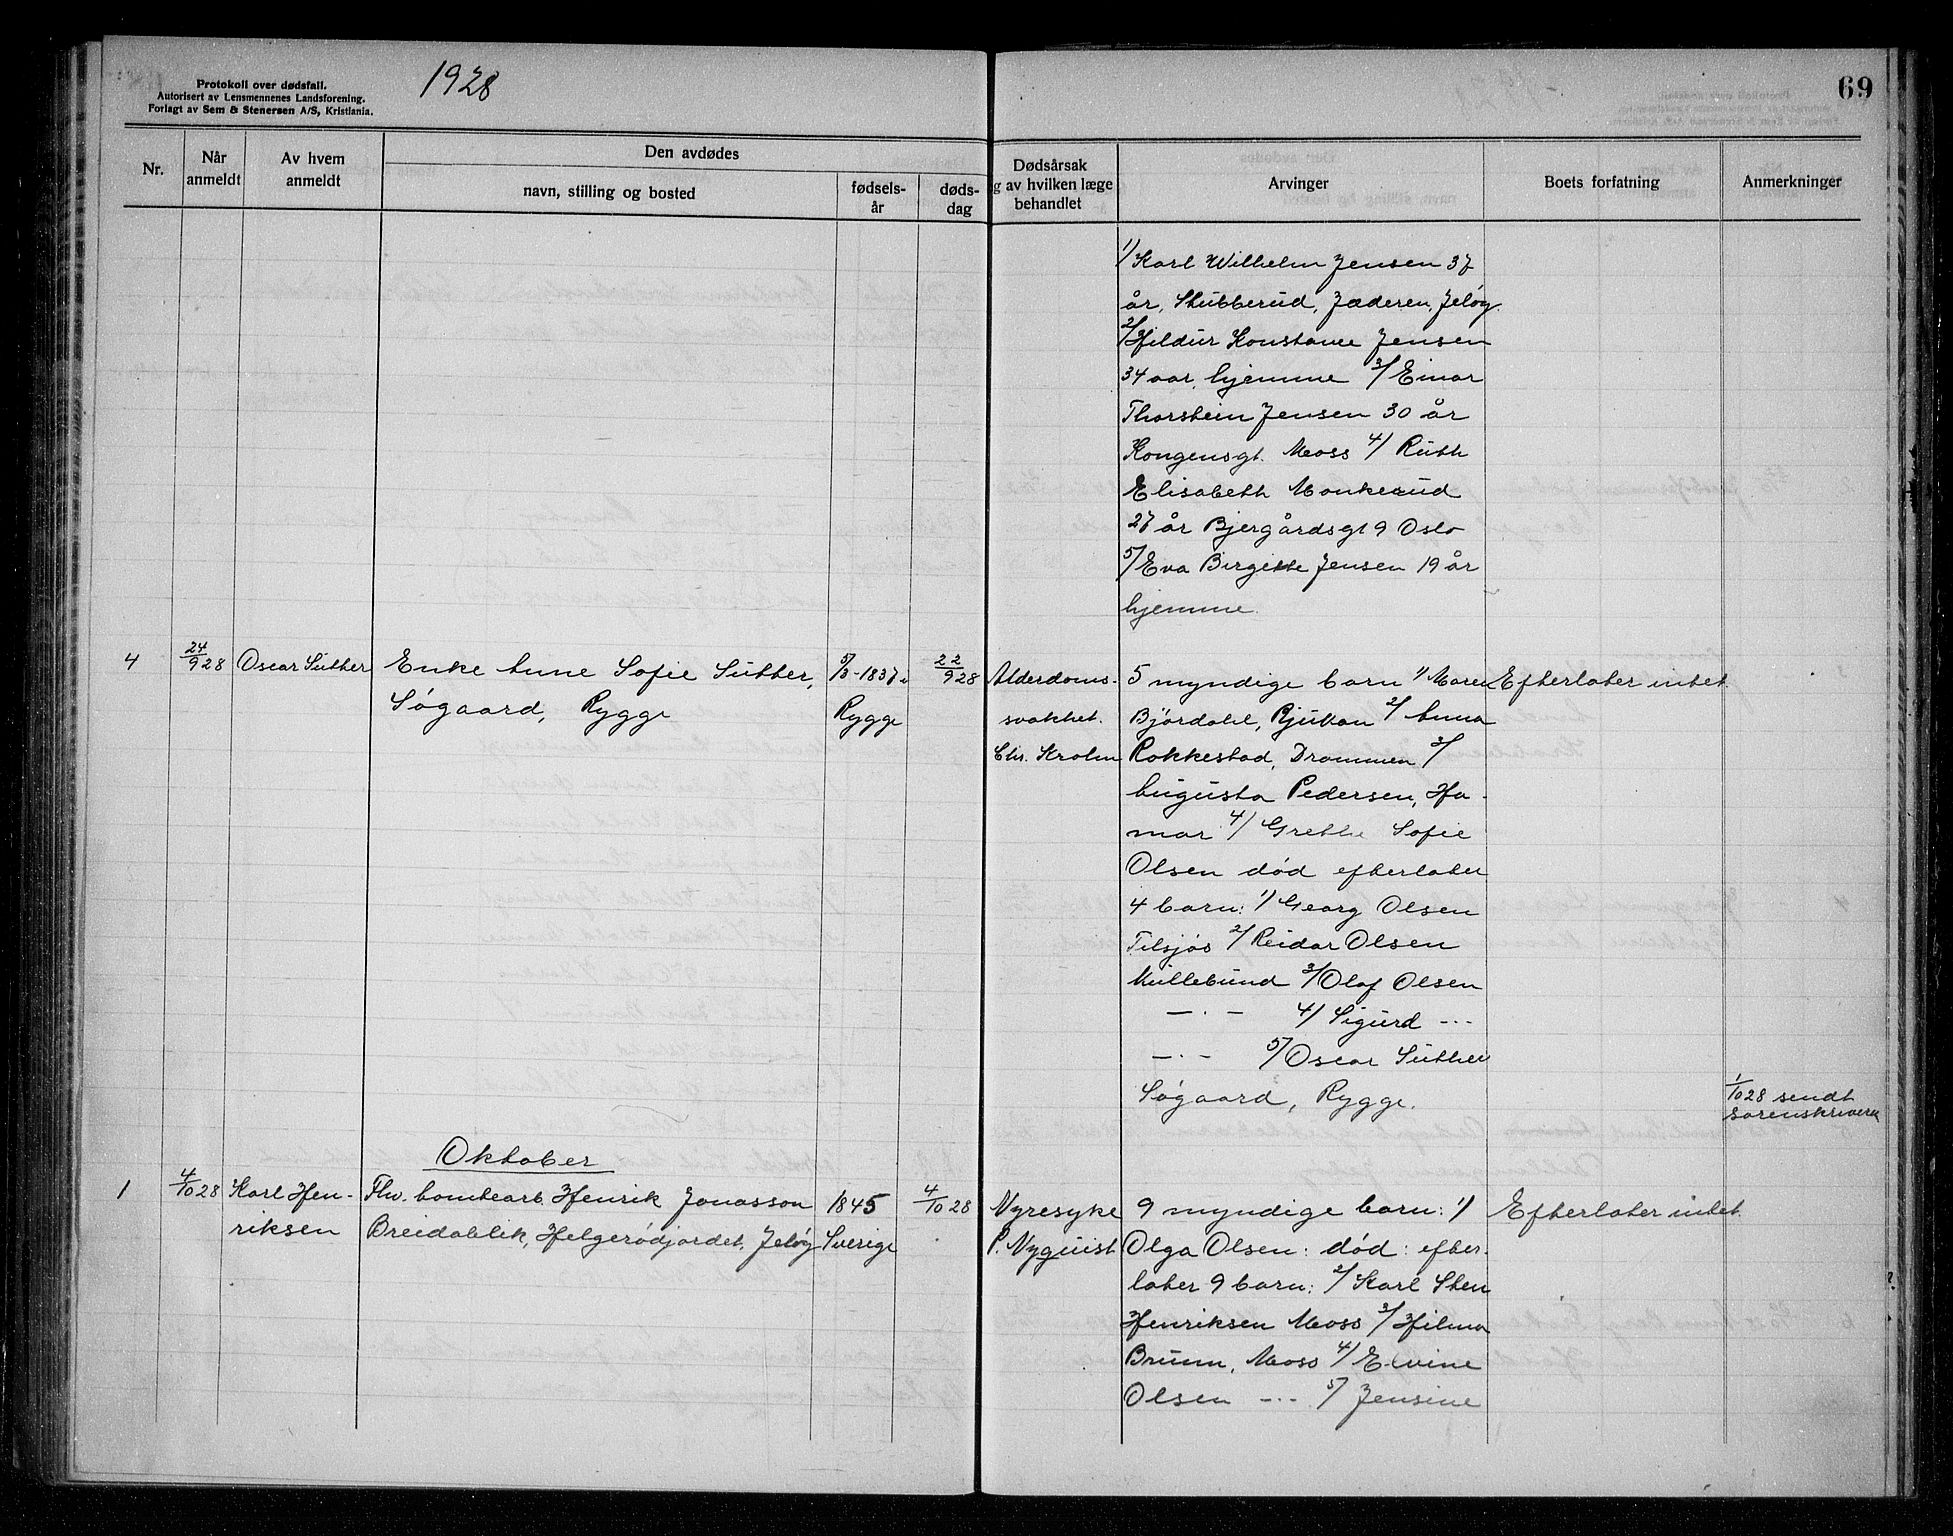 Protokoll over dødsfall.
Autorisert av Lensmennenes Landsforening.
Forlagt av Sem & Stenersen A/S, Kristiania.
1928
69
Nr.
Når anmeldt
Av hvem anmeldt
Den avdødes
navn, stilling og bosted
fødsels-år
døds-dag
Dødsårsak
g av hvilken læge
behandlet
Arvinger
Boets forfatning
Anmerkninger
1/ Karl Wilhelm Jensen 37
år, Stubberud, Jæderen, Jeløy.
2/ Hildur Konstance Jensen
34 aar, hjemme 3/ Einar
Thorstein Jensen 30 år
Kongensgt. Moss 4/ Ruth
Elisabeth Monkerud
27 år Bjergårdsgt 9 Oslo
5/ Eva Birgitte Jensen 19 år
hjemme.
4
24/9 28
Oscar Suther
Enke Anne Sofie Suther,
Søgaard, Rygge
1837
Rygge
22/9 28
Alderdoms-
svakhet.
Chr. Krohn
5 myndige barn 1/ Maren
Bjørdahl, Rjukan 2/ Anna
Rokkestad, Drammen 3/
Augusta Pedersen, Ha-
mar 4/ Grethe Sofie
Olsen død efterlater
4 barn: 1/ Georg Olsen
2/ Reidar Olsen
3/ Olaf Olsen
— · — 4/ Sigurd — · ·
— · — 5/ Oscar Suther
Søgaard, Rygge.
Efterlater intet.
1/10 28 sendt
Sorenskriveren
Oktober
1
4/10 28
Karl Hen-
riksen
Fhv. Henrik Jonasson
Breidablik, Helgerødjordet, Jeløy
1845
Sverige
4/10 28
Nyresyke
P. Nyquist
9 myndige barn: 1/
Olga Olsen: død: efter-
later 9 barn: 2/ Karl Sten
Henriksen Moss 3/ Hilma
Bruun, Moss 4/ Elvine
Olsen — · · 5/ Jensine
Efterlater intet.